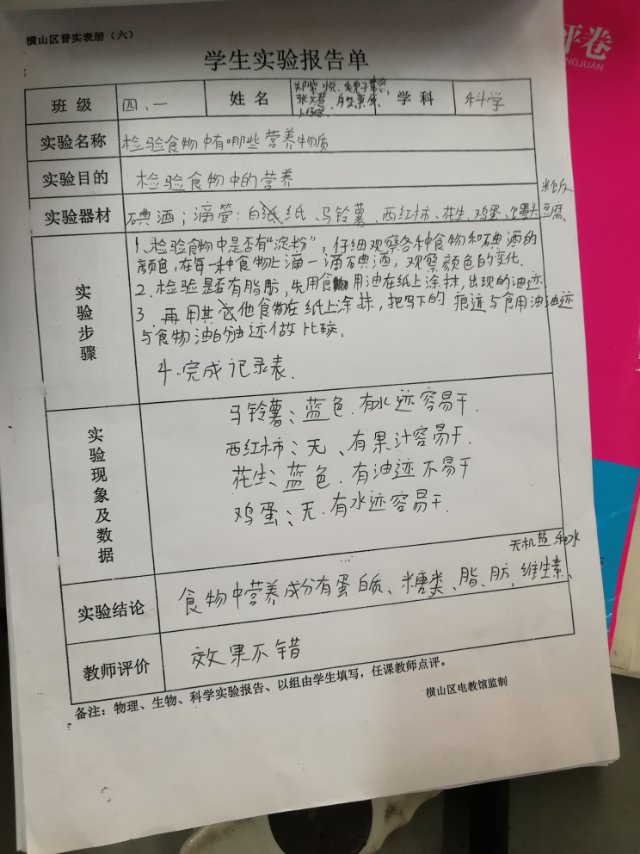 横山区普实表册（六）
学生实验报告单
评卷
NGJUAN
班级 四、一 姓名 学科 科学
实验名称 检验食物中有哪些营养物质
实验目的 检验食物中的营养
米饭
实验器材 碘酒；滴管：白纸、马铃薯、西红柿、花生、鸡蛋、豆腐
实验步骤
1、检验食物中是否有“淀粉”，仔细观察各种食物和碘酒的
颜色，在每一种食物上滴一滴碘酒，观察颜色的变化.
2、检验是否有脂肪，先用食用油在纸上涂抹，出现的油迹.
3、再用其它他食物在纸上涂抹，把写下的痕迹与食用油油迹
与食物油的油迹做比较.
4.完成记录表.
实验现象及数据
马铃薯：蓝色.有水迹容易干.
西红柿：无、有果汁容易干.
花生：蓝色.有油迹不易干
鸡蛋：无.有水迹容易干.
无机盐和水
实验结论 食物中营养成分有蛋白质、糖类、脂、肪、维生素、
教师评价 效果不错
备注：物理、生物、科学实验报告、以组由学生填写，任课教师点评。
横山区电教馆监制